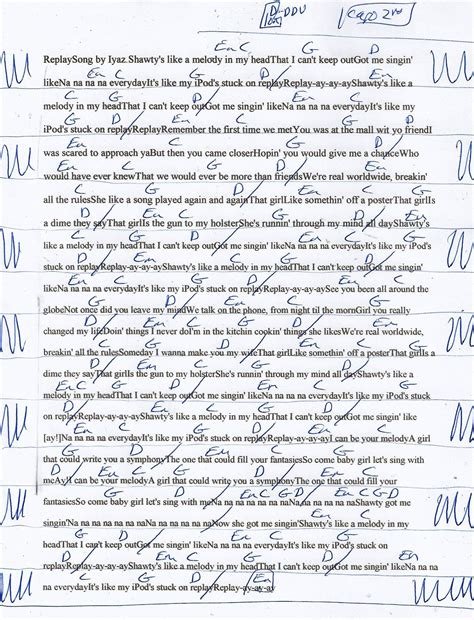 D-DDU Capo 2nd
Em C G D
ReplaySong by Iyaz.Shawty's like a melody in my headThat I can't keep outGot me singin'
Em C G D Em C
likeNa na na na everydayIt's like my iPod's stuck on replayReplay-ay-ay-ayShawty's like a
G D Em C G
melody in my headThat I can't keep outGot me singin' likeNa na na na everydayIt's like my
D Em C G
iPod's stuck on replayReplayRemember the first time we metYou was at the mall wit yo friendI
D Em C G D
was scared to approach yaBut then you came closerHopin' you would give me a chanceWho
Em C G D Em
would have ever knewThat we would ever be more than friendsWe're real worldwide, breakin'
C G D Em C
all the rulesShe like a song played again and againThat girlLike somethin' off a posterThat girlIs
G D Em
a dime they sayThat girlIs the gun to my holsterShe's runnin' through my mind all dayShawty's
C G D Em C G
like a melody in my headThat I can't keep outGot me singin' likeNa na na na everydayIt's like my iPod's
D Em C G D
stuck on replayReplay-ay-ay-ayShawty's like a melody in my headThat I can't keep outGot me singin'
Em C G D Em
likeNa na na na everydayIt's like my iPod's stuck on replayReplay-ay-ay-aySee you been all around the
C G D Em C G
globeNot once did you leave my mindWe talk on the phone, from night til the mornGirl you really
D Em C G D
changed my lifeDoin' things I never doI'm in the kitchin cookin' things she likesWe're real worldwide,
Em C G D Em C
breakin' all the rulesSomeday I wanna make you my wifeThat girlLike somethin' off a posterThat girlIs a
G D Em C
dime they sayThat girlIs the gun to my holsterShe's runnin' through my mind all dayShawty's like a
Em C G D Em C G
melody in my headThat I can't keep outGot me singin' likeNa na na na everydayIt's like my iPod's stuck
D Em C G D
on replayReplay-ay-ay-ayShawty's like a melody in my headThat I can't keep outGot me singin' like
Em C G D Em
[ay!]Na na na na everydayIt's like my iPod's stuck on replayReplay-ay-ay-ayI can be your melodyA girl
C G D Em C
that could write you a symphonyThe one that could fill your fantasiesSo come baby girl let's sing with
G D Em C G D
meAyI can be your melodyA girl that could write you a symphonyThe one that could fill your
Em C G D Em C G D
fantasiesSo come baby girl let's sing with meNa na na na na na naNa na na na na naShawty got me
singin'Na na na na na na naNa na na na na na naNow she got me singin'Shawty's like a melody in my
headThat I can't keep outGot me singin' likeNa na na na everydayIt's like my iPod's stuck on
replayReplay-ay-ay-ayShawty's like a melody in my headThat I can't keep outGot me singin' likeNa na na
C G D Em
na everydayIt's like my iPod's stuck on replayReplay-ay-ay-ay